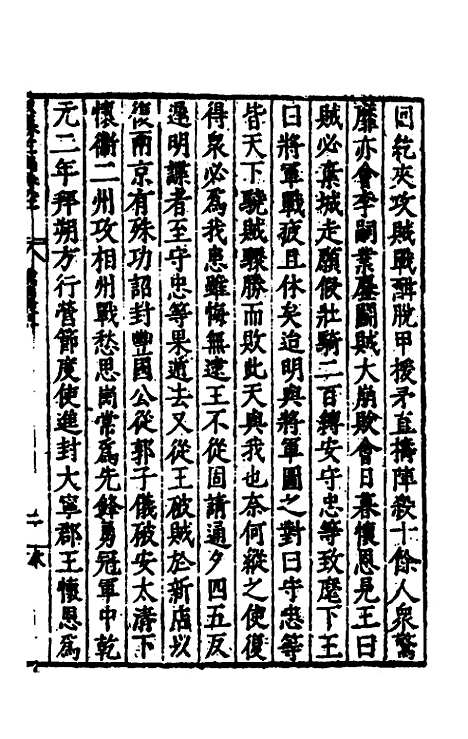 回紇夾攻賊戰酣脫甲援矛直擣陣殺十餘人衆驚
靡亦會李嗣業鏖鬬賊大崩敗會日暮懷恩見王曰
賊必棄城走願假壯騎二百縛安守忠等致麾下王
曰將軍戰疲且休矣迨明與將軍圖之對曰守忠等
皆天下驍賊驟勝而敗此天與我也奈何縱之使復
得衆必爲我患雖悔無逮王不從固請通夕四五反
遲明諜者至守忠等果遁去又從王破賊於新店以
復兩京有殊功詔封豐國公從郭子儀破安太清下
懷衞二州攻相州戰愁思崗常爲先鋒勇冠軍中乾
元二年拜朔方行營節度使進封大寧郡王懷恩爲